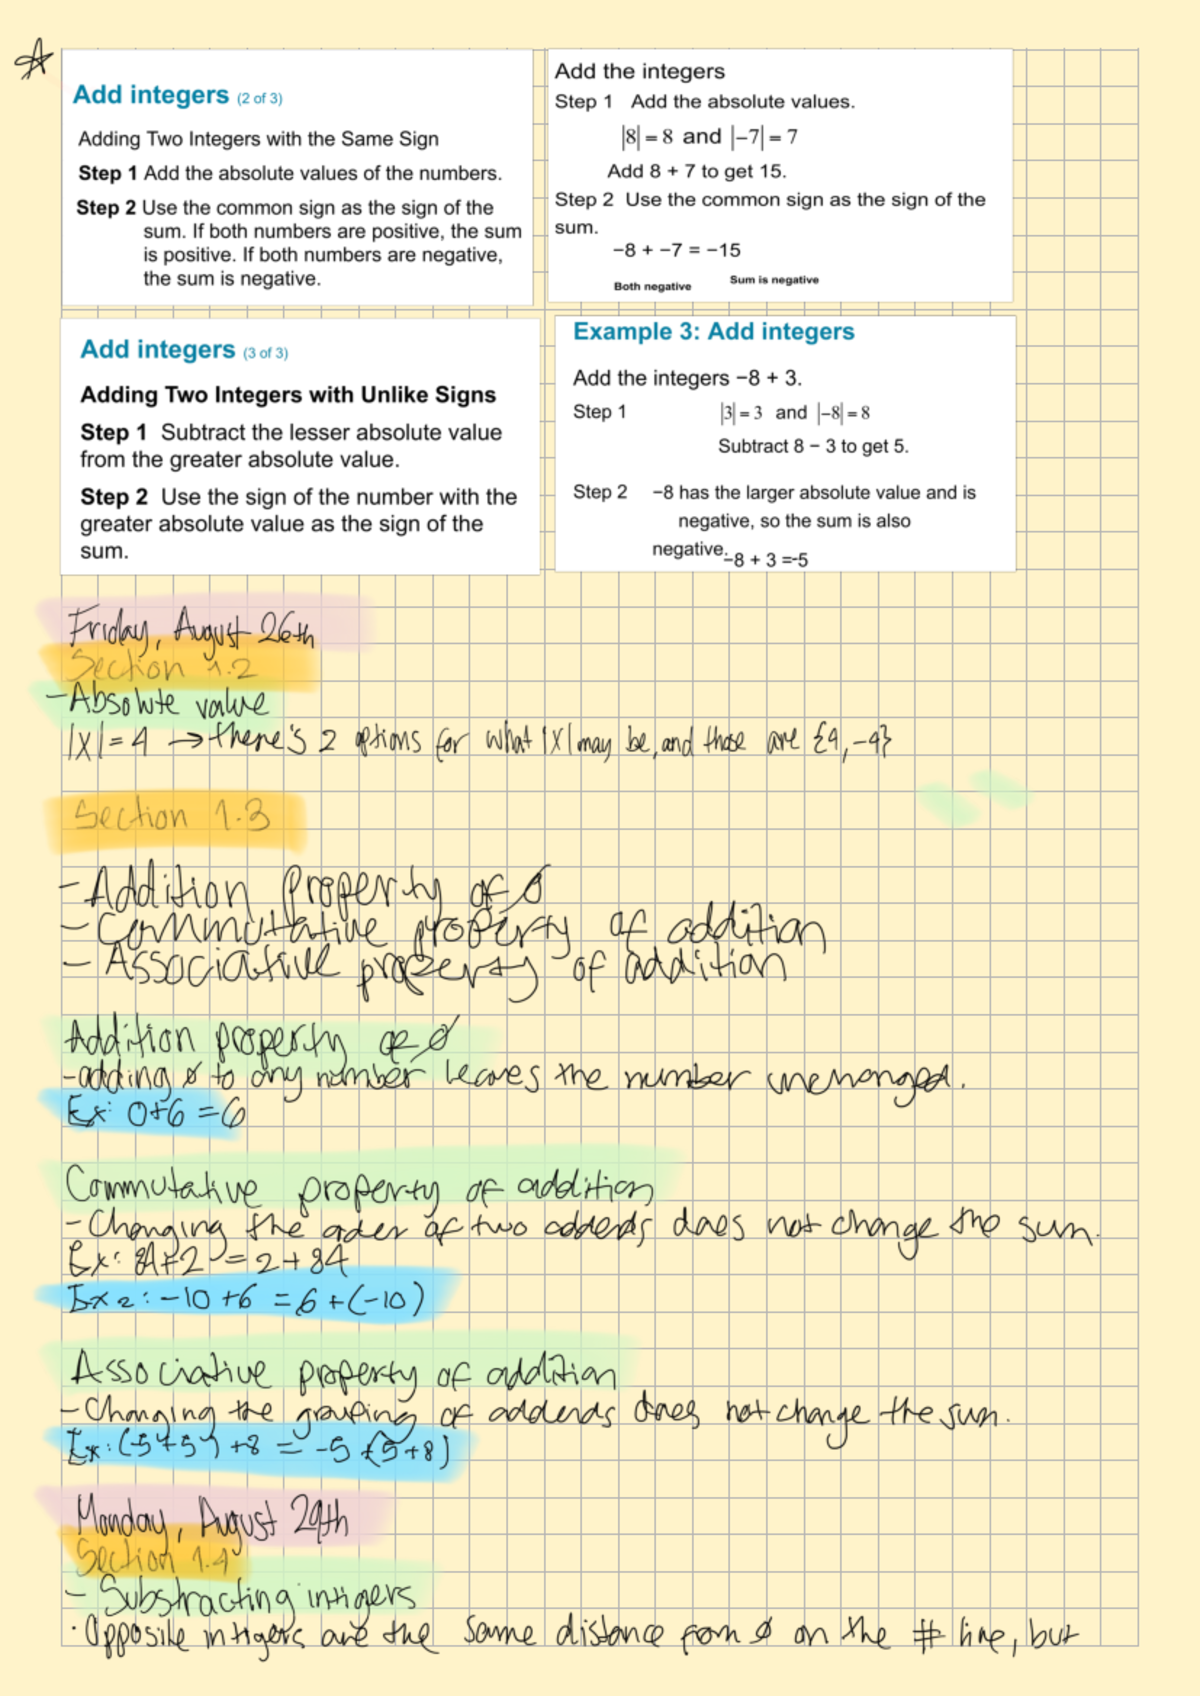 Add integers (2 of 3)
Adding Two Integers with the Same Sign
Step 1 Add the absolute values of the numbers.
Step 2 Use the common sign as the sign of the
sum. If both numbers are positive, the sum
is positive. If both numbers are negative,
the sum is negative.
Add the integers
Step 1 Add the absolute values.
|8| = 8 and |−7| = 7
Add 8 + 7 to get 15.
Step 2 Use the common sign as the sign of the
sum.
−8 + −7 = −15
Both negative
Sum is negative
Add integers (3 of 3)
Adding Two Integers with Unlike Signs
Step 1 Subtract the lesser absolute value
from the greater absolute value.
Step 2 Use the sign of the number with the
greater absolute value as the sign of the
sum.
Example 3: Add integers
Add the integers −8 + 3.
Step 1 |3| = 3 and |−8| = 8
Subtract 8 − 3 to get 5.
Step 2 −8 has the larger absolute value and is
negative, so the sum is also
negative.
−8 + 3 =-5
Friday, August 26th
Section 1.2
- Absolute value
|x| = 4 → there's 2 options for what |x| may be, and those are {4, -4}
Section 1.3
- Addition Property of 0
- Commutative property of addition
- Associative property of addition
Addition property of 0
- adding 0 to any number leaves the number unchanged.
Ex: 0+6 = 6
Commutative property of addition
- Changing the order of two addends does not change the sum.
Ex: 84+2 = 2+84
Ex 2: -10 +6 = 6 +(-10)
Associative property of addition
- Changing the grouping of addends does not change the sum.
Ex: (-5+5) +8 = -5 +(5+8)
Monday, August 29th
Section 1.4
- Substracting intigers
· Opposite intigers are the same distance from 0 on the # line, but